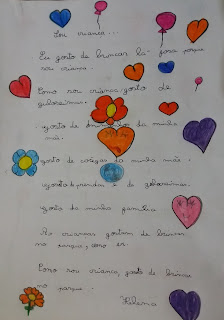 Sou criança...
Eu gosto de brincar lá fora porque
sou criança.
Como sou criança gosto de
guloseimas.
gosto de da minha
mãe.
gosto de cócegas da minha mãe.
gosto de prendas e de guloseimas.
gosto da minha família
As crianças gostam de brincar
no parque, como eu.
Como sou criança, gosto de brincar
no parque.
Helena